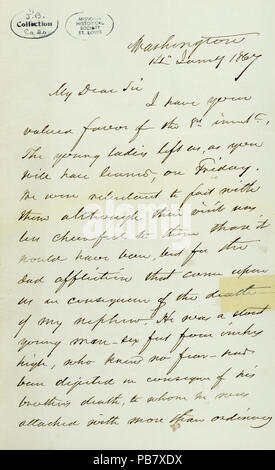 J.B.
Collection
MISSOURI
HISTORICAL
SOCIETY
ST. LOUIS
Washington
14 Jany 1867
My Dear Sir
I have your
valued favor of the 8th inst,
The young ladies left us, as you
will have learned on Friday.
We were reluctant to part with
them although their visit was
less cheerful to them than it
would have been, but for the
sad affliction that came upon
us in consequence of the death
of my nephew. He was a stout
young man six feet four inches
high, who knew no fear had
been dejected in consequence of his
brother's death, to whom he was
attached with more than ordinary
alamy stock photo
PB7XDX
www.alamy.com